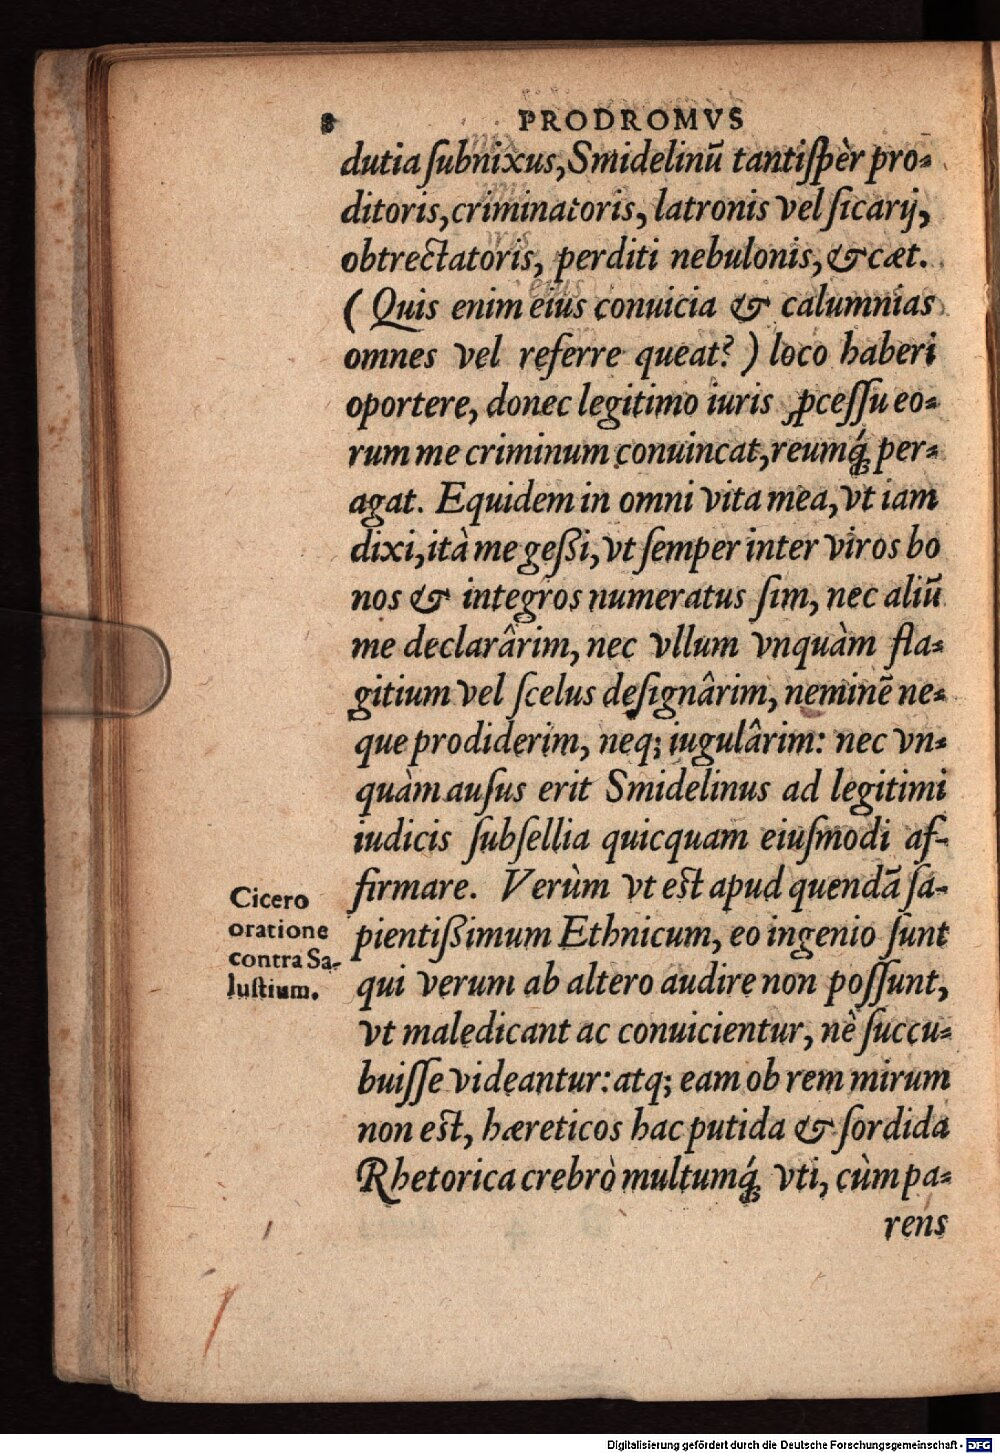 8 PRODROMVS
dutia ſubnixus, Smidelinū tantiſpèr pro-
ditoris, criminatoris, latronis vel ſicarij,
obtrectatoris, perditi nebulonis, & cæt.
(Quis enim eius conuicia & calumnias
omnes vel referre queat?) loco haberi
oportere, donec legitimo iuris ꝓceſſu eo-
rum me criminum conuincat, reumq́; per-
agat. Equidem in omni vita mea, vt iam
dixi, ità me geßi, vt ſemper inter viros bo
nos & integros numeratus ſim, nec aliū
me declarârim, nec vllum vnquàm fla-
gitium vel ſcelus deſignârim, neminē ne-
que prodiderim, neq; iugulârim: nec vn-
quàm auſus erit Smidelinus ad legitimi
iudicis ſubſellia quicquam eiuſmodi af-
firmare. Verùm vt est apud quendā ſa-
pientißimum Ethnicum, eo ingenio ſunt
qui verum ab altero audire non poſſunt,
vt maledicant ac conuicientur, nè ſuccu-
buiſſe videantur: atq; eam ob rem mirum
non est, hæreticos hac putida & ſordida
Rhetorica crebrò multumq́; vti, cùm pa-
rens
Cicero
oratione
contra Sa-
luſtium.
Digitalisierung gefördert durch die Deutsche Forschungsgemeinschaft - DFG